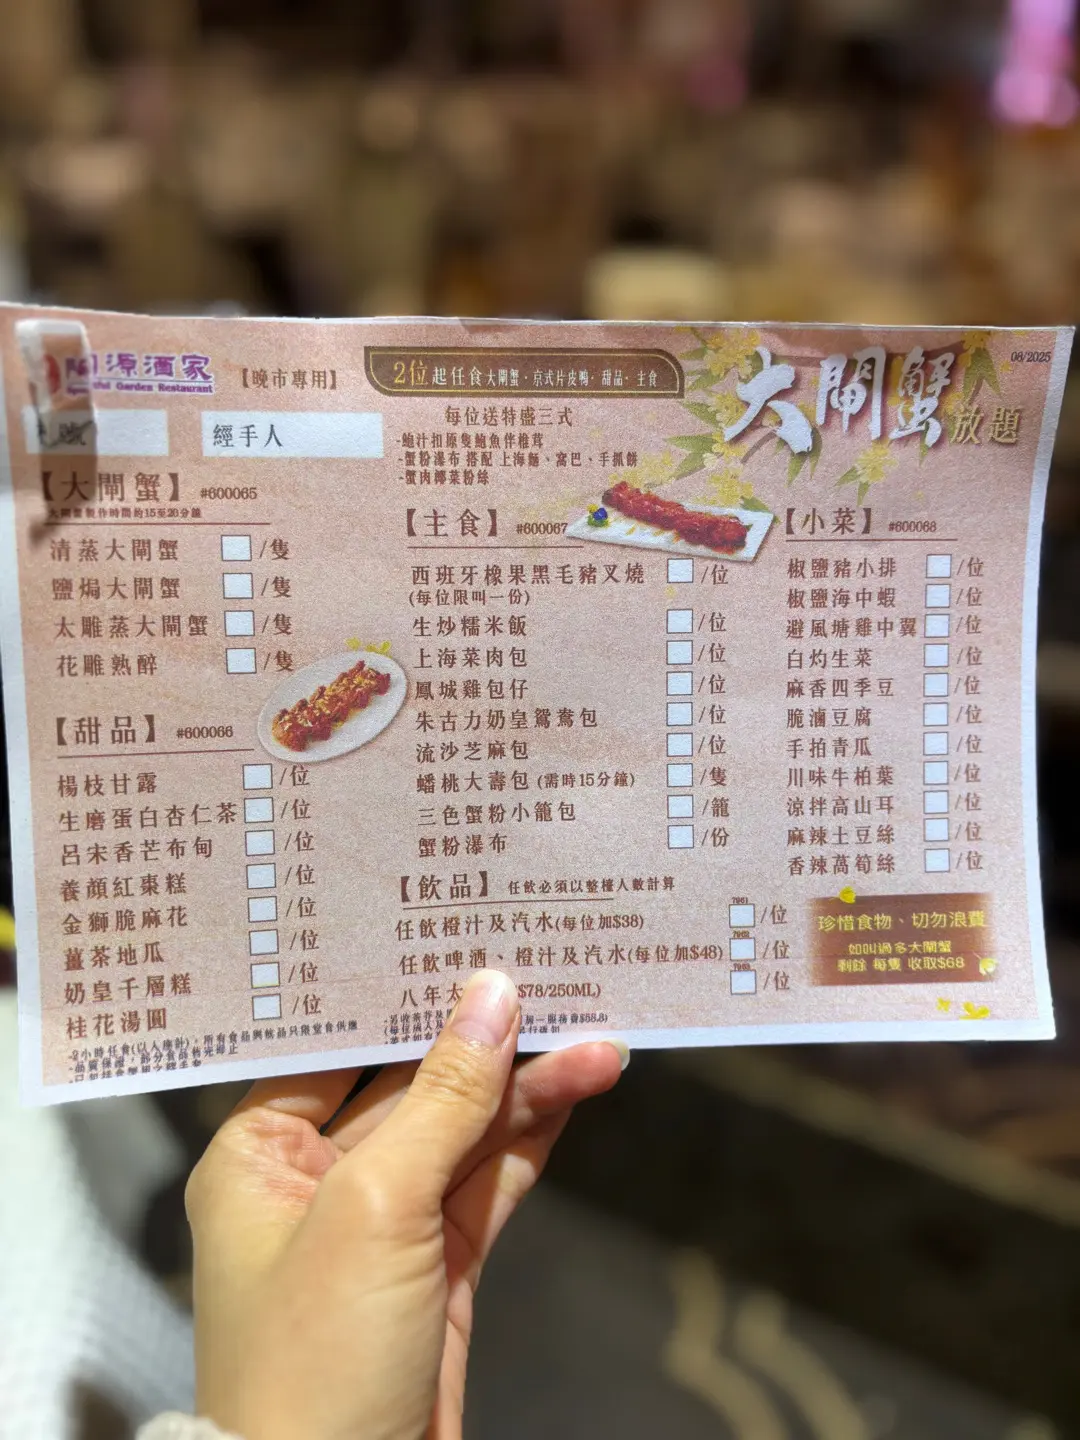 源酒家
Garden Restaurant
【晚市專用】
2位起任食大閘蟹、京式片皮鴨、甜品、主食
大閘蟹
放題
08/2025
經手人
每位送特盛三式
-鮑汁扣原隻鮑魚伴椎茸
-蟹粉瀑布 搭配 上海麵、窩巴、手抓餅
-蟹肉椰菜粉絲
【大閘蟹】 #600065
大閘蟹製作時間約15至20分鐘
清蒸大閘蟹 /隻
鹽焗大閘蟹 /隻
太雕蒸大閘蟹 /隻
花雕熟醉 /隻
【甜品】 #600066
楊枝甘露 /位
生磨蛋白杏仁茶 /位
呂宋香芒布甸 /位
養顏紅棗糕 /位
金獅脆麻花 /位
薑茶地瓜 /位
奶皇千層糕 /位
桂花湯圓 /位
【主食】 #600067
西班牙橡果黑毛豬叉燒 /位
(每位限叫一份)
生炒糯米飯 /位
上海菜肉包 /位
鳳城雞包仔 /位
朱古力奶皇鴛鴦包 /位
流沙芝麻包 /位
蟠桃大壽包 (需時15分鐘) /隻
三色蟹粉小籠包 /籠
蟹粉瀑布 /份
【飲品】 任飲必須以整檯人數計算
任飲橙汁及汽水(每位加$38) 7961 /位
任飲啤酒、橙汁及汽水(每位加$48) 7962 /位
八年太 $78/250ML) 7963 /位
【小菜】 #600068
椒鹽豬小排 /位
椒鹽海中蝦 /位
避風塘雞中翼 /位
白灼生菜 /位
麻香四季豆 /位
脆滷豆腐 /位
手拍青瓜 /位
川味牛柏葉 /位
涼拌高山耳 /位
麻辣土豆絲 /位
香辣萵筍絲 /位
珍惜食物、切勿浪費
如叫過多大閘蟹
剩餘 每隻 收取$68
-2小時任食(以入座計)，所有食品與飲品只限堂食供應
-品質保證，部分食品售完即止